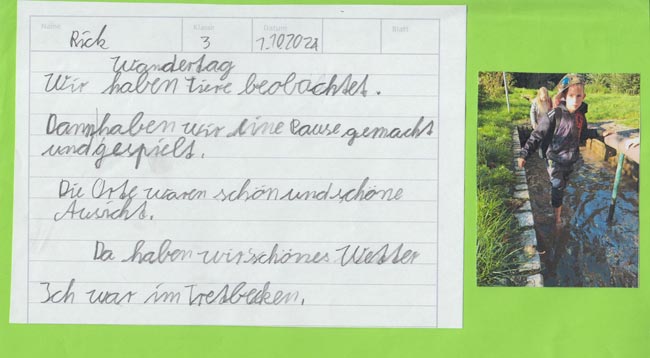 Name Klasse Datum Blatt
Rick 3 1.10.2021
Wandertag
Wir haben Tiere beobachtet.
Dann haben wir eine Pause gemacht
und gespielt.
Die Orte waren schön und schöne
Aussicht.
Da haben wir schönes Wetter
Ich war im Tretbecken.